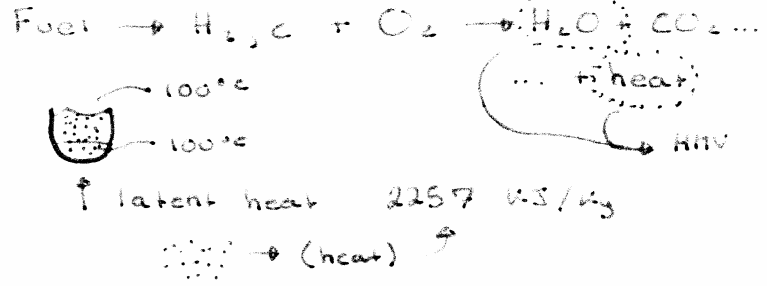 Fuel → H₂, C + O₂ → H₂O + CO₂ ...
... + heat
100°C
100°C
HHV
↑ latent heat 2257 kJ/kg
→ (heat)